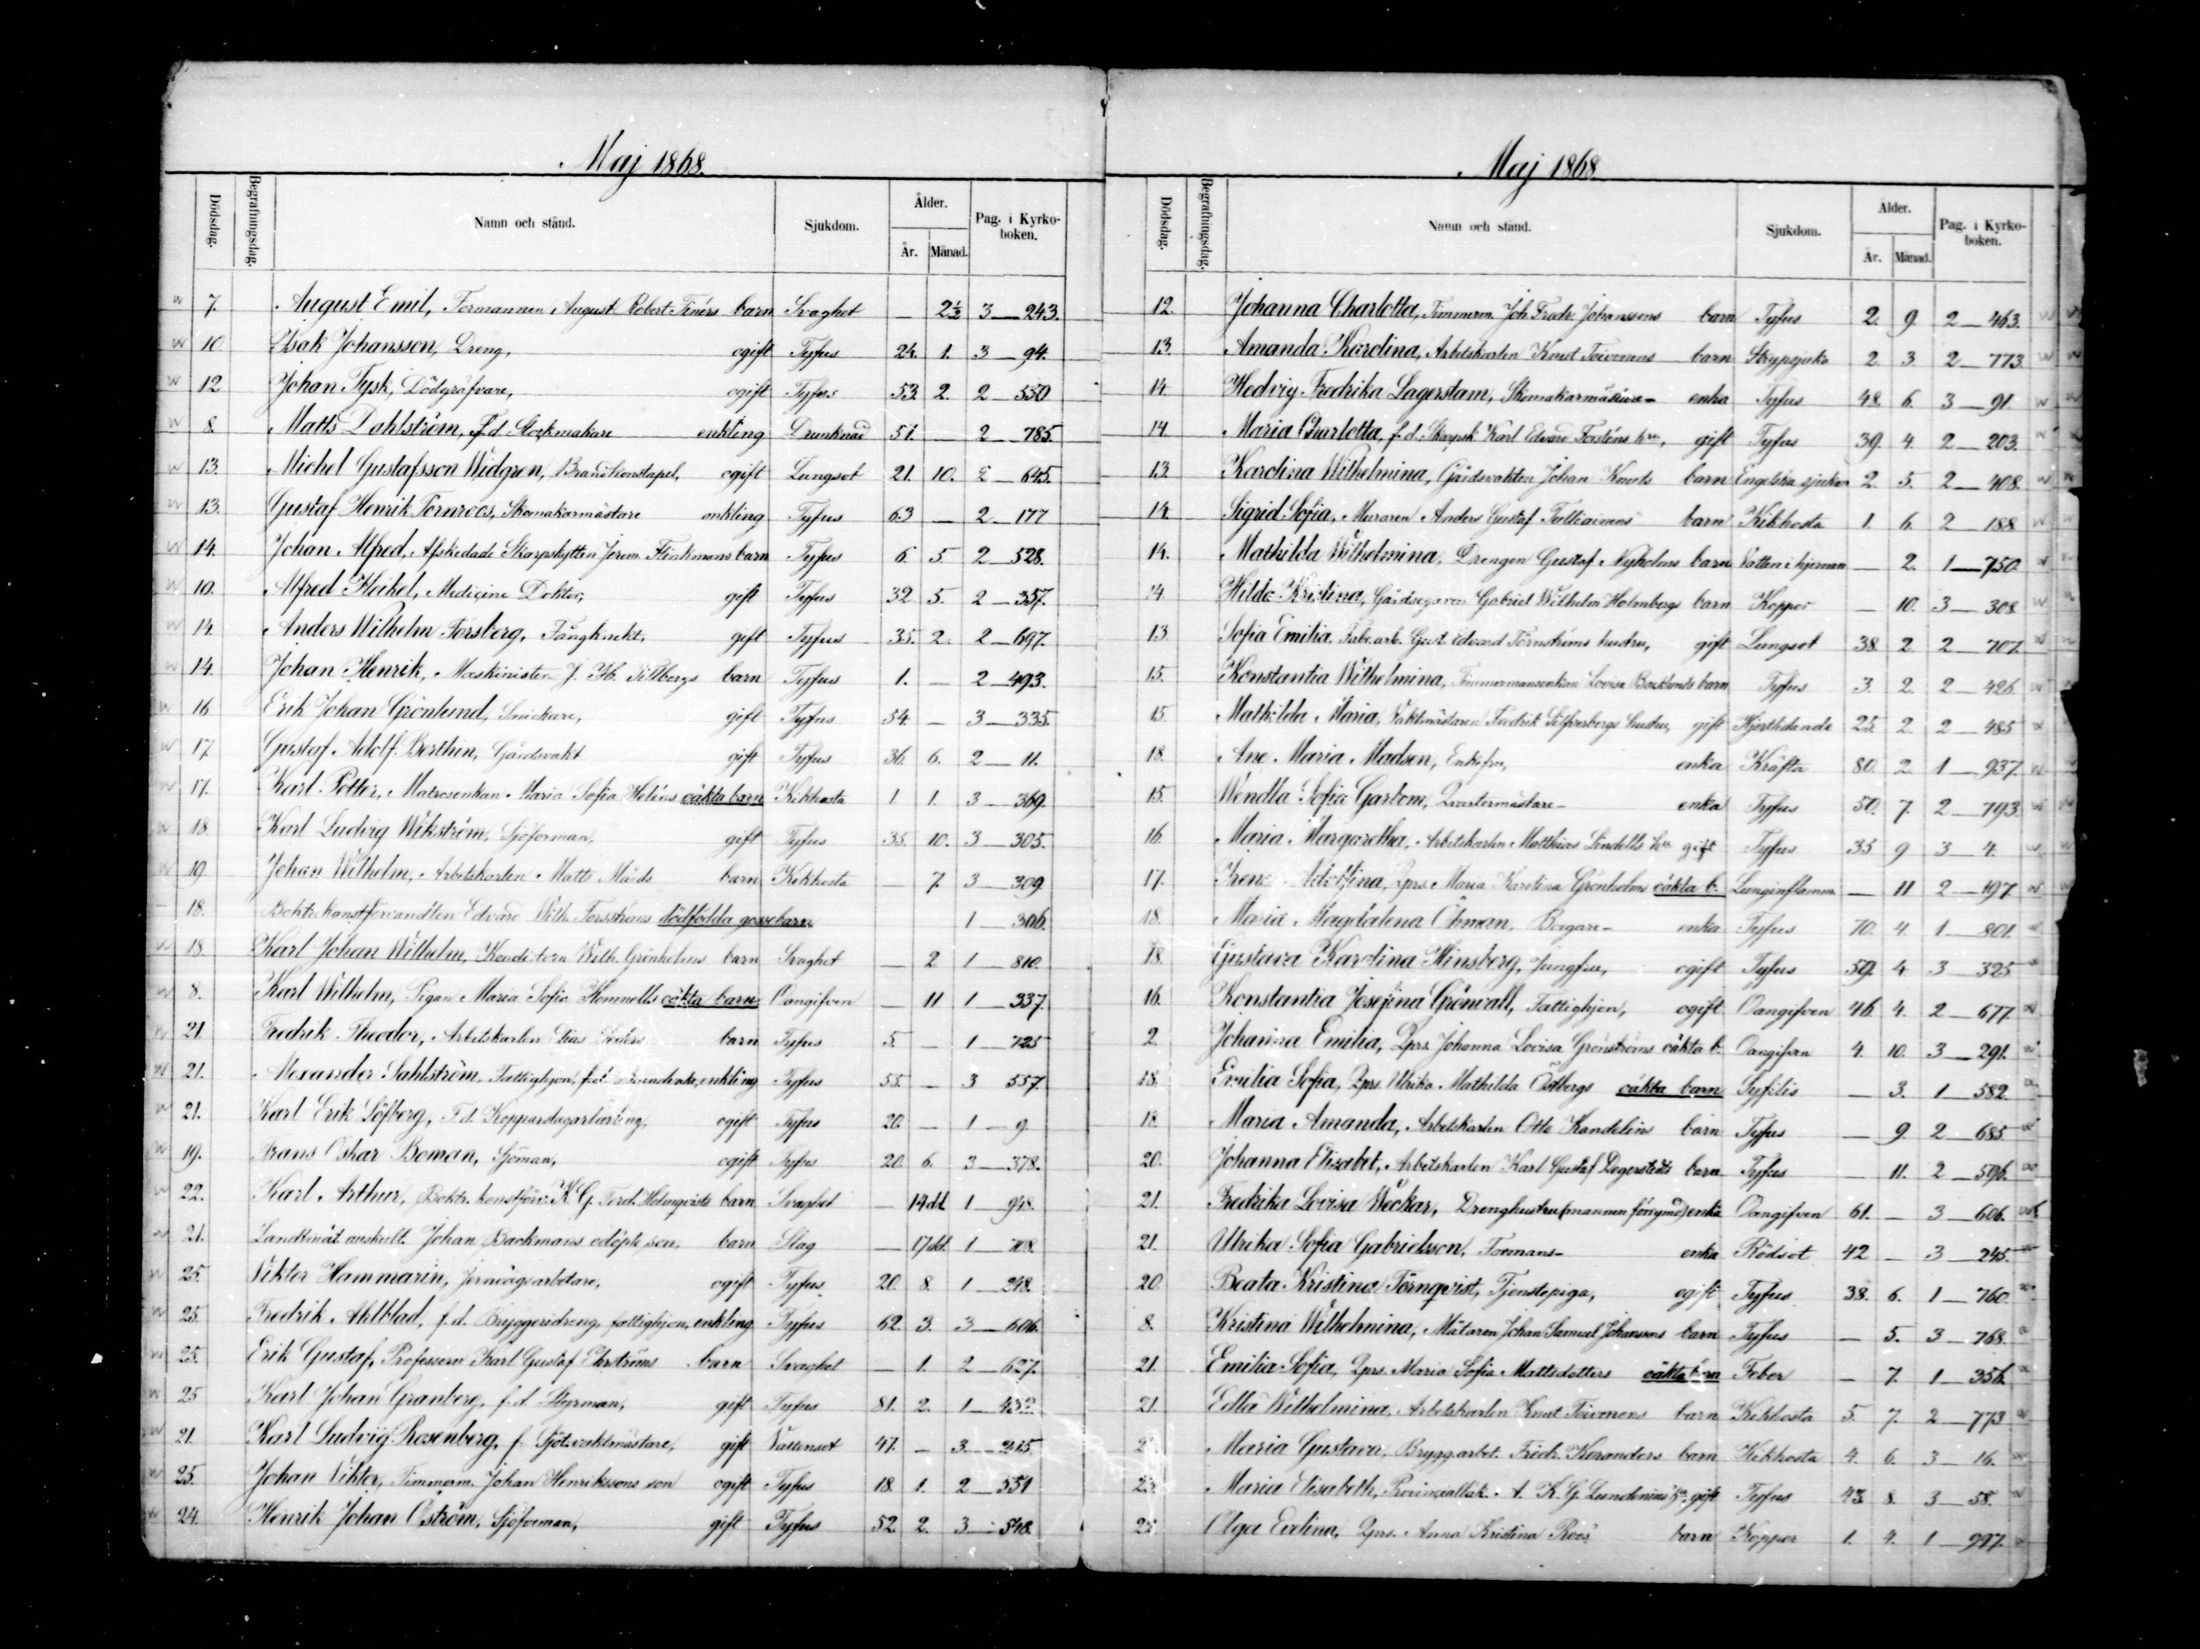 Maj 1868.
Dödsdag. Begrafningsdag. Namn och stånd. Sjukdom. Ålder. År. Månad. Pag. i Kyrko-boken.
7. August Emil, Formannen August Robert Finérs barn Svaghet — 2½ 3 — 243.
10 Isak Johansson, Dreng, ogift Tyfus 24. 1. 3 — 94.
12 Johan Tysk, Dödgräfvare, ogift Tyfus 53. 2. 2 — 550
8. Matts Dahlström, f.d. Stockmakare enkling Drunknad 51. — 2 — 785.
13. Michel Gustafsson Widgren, Brandkonstapel, ogift Lungsot 21. 10. 2 — 645.
13. Gustaf Henrik Törnroos, Skomakarmästare enkling Tyfus 63 — 2 — 177
14. Johan Alfred, Afskedade Skarpskytten Jerem. Flinkmans barn Tyfus 6. 5. 2 — 528.
10. Alfred Heikel, Medicine Doktor, gift Tyfus 32. 5. 2 — 357.
14. Anders Wilhelm Forsberg, Fångknekt, gift Tyfus 35. 2. 2 — 697.
14. Johan Henrik, Maskinisten J. Hb. Tillbergs barn Tyfus 1. — 2 — 493.
16 Erik Johan Grönlund, Snickare, gift Tyfus 54. — 3 — 335.
17. Gustaf Adolf Berthin, Gårdsvakt gift Tyfus 36. 6. 2 — 11.
17. Karl Petter, Matrosenkan Maria Sofia Heléns oäkta barn Kikhosta 1. 1. 3 — 369.
18. Karl Ludvig Wikström, Sjöforman, gift Tyfus 35. 10. 3 — 305.
19 Johan Wilhelm, Arbetskarlen Matts Mårds barn Kikhosta — 7. 3 — 309.
18. Boktr. konstförvandten Edvard Wilh. Forsströms dödfödda gossebarn 1 — 306.
18. Karl Johan Wilhelm, Konditorn Wilh. Grönholms barn Svaghet — 2 1 — 810.
8. Karl Wilhelm, Pigan Maria Sofia Hemnells oäkta barn Oangifven — 11 1 — 337.
21 Fredrik Theodor, Arbetskarlen Elias barn Tyfus 5. — 1 — 725
21. Alexander Sahlström, Fattighjon, enkling Tyfus 55. — 3 557.
21. Karl Erik Löfberg, F.d. Kopparslagarlärling, ogift Tyfus 20. — 1 — 9.
19. Frans Oskar Boman, Sjöman, ogift Tyfus 20. 6. 3 — 378.
22. Karl Arthur, Boktr. konstförv. K.G. Ferd. Holmqvists barn Svaghet — 14 dd. 1 — 948.
21. Landtmät. auskult. Johan Backmans odöpte son, barn Slag — 17 dd. 1 — 708.
25. Viktor Hammarin, Jernvägsarbetare, ogift Tyfus. 20. 8. 1 — 248.
25. Fredrik Ahlblad, f.d. Bryggeridreng, fattighjon, enkling Tyfus 62. 3. 3 — 606.
25. Erik Gustaf, Professorn Karl Gustaf Ehrströms barn Svaghet — 1. 2 — 627.
25 Karl Johan Granberg, f.d. Styrman, gift Tyfus 81. 2. 1 —
21. Karl Ludvig Rosenberg, f. vaktmästare, gift Vattensot 47. — 3. — 215.
25. Johan Viktor, Timmerm. Johan Henrikssons son ogift Tyfus 18. 1. 2 — 551
24. Henrik Johan Öström, Sjöforman, gift Tyfus 52. 2. 3 — 548.
Maj 1868
Dödsdag. Begrafningsdag. Namn och stånd. Sjukdom. Ålder. År. Månad. Pag. i Kyrko-boken.
12. Johanna Charlotta, Timmerm. Joh. Fredr. Johanssons barn Tyfus 2. 9. 2 — 463.
13. Amanda Karolina, Arbetskarlen Knut Toivonens barn Strypsjuka 2. 3 2 — 773.
14. Hedvig Fredrika Lagerstam, Skomakarmästare- enka Tyfus 48. 6. 3 — 91.
14. Maria Charlotta, f.d. Skarpsk. Karl Edvard Forsténs hu, gift Tyfus 39. 4. 2 — 203.
13. Karolina Wilhelmina, Gårdsvakten Johan Knuts barn Engelska sjukan 2. 5. 2 — 408.
14. Sigrid Sofia, Muraren Anders Gustaf barn Kikhosta 1. 6. 2 188
14. Mathilda Wilhelmina, Drengen Gustaf Nyholms barn Vatten i hjernan — 2. 1 — 750.
14 Hilda Kristina, Gårdsegaren Gabriel Wilhelm Holmbergs barn Koppor — 10. 3 — 308.
13. Sofia Emilia, Fabr. arb. Gust. Edvard Törnströms hustru, gift Lungsot 38. 2. 2 — 707.
15. Konstantia Wilhelmina, Timmermansenkan Lovisa Backlunds barn Tyfus 3. 2. 2 — 426.
15. Mathilda Maria, Vaktmästaren Fredrik Silfverbergs hustru, gift Hjertlidande 25. 2. 2 — 485
18. Ane Maria Madsen, Enkefru, enka Kräfta 80. 2. 1 — 937.
15. Wendla Sofia Garbom, Qvartermästare- enka Tyfus 50. 7. 2 — 793.
16. Maria Margaretha, Arbetskarlen Matthias Lindells hu gift Tyfus 35 9 3 — 4.
17. Irene Adolfina, Qprs. Maria Karolina Grönholms oäkta b. Lunginflamm. — 11 2 — 197
18. Maria Magdalena Öhman, Bagare- enka Tyfus 70. 4. 1 — 801.
18. Gustava Karolina Hinsberg, Jungfru, ogift Tyfus 59. 4 3 — 325
16. Konstantia Josefina Grönvall, Fattighjon, ogift Oangifven 46. 4. 2 — 677.
2. Johanna Emilia, Qprs. Johanna Lovisa Grönströms oäkta b. Oangifven 4. 10. 3 — 291.
18. Emilia Sofia, Qprs. Ulrika Mathilda Östbergs oäkta barn Syfilis — 3. 1 — 582.
18. Maria Amanda, Arbetskarlen Otto Kandelins barn Tyfus — 9. 2 — 685.
20. Johanna Elisabet, Arbetskarlen Karl Gustaf Lagerstedts barn Tyfus — 11. 2 — 596.
21. Fredrika Lovisa Weckar, Drenghustru (mannen försvunn.) enka Oangifven 61. — 3 — 606.
21. Ulrika Sofia Gabrielsson, Formans- enka Rödsot 42 — 3 — 245.
20 Beata Kristina Törnqvist, Tjenstepiga, ogift Tyfus 38. 6. 1 — 760.
8. Kristina Wilhelmina, Mätaren Johan Samuel Johanssons barn Tyfus — 5. 3 — 768.
21. Emilia Sofia, Qprs. Maria Sofia Mattsdotters oäkta barn Feber — 7. 1 — 356.
21. Edla Wilhelmina, Arbetskarlen Knut Toivonens barn Kikhosta 5. 7. 2 — 773
Maria Gustava, Bryggarbet. Fredr. Koranders barn Kikhosta 4. 6. 3 — 16.
23. Maria Elisabeth, Provincialläk. A. K. G. Lundenius hu, gift Tyfus 43 8. 3 — 58.
25. Olga Evelina, Qprs. Anna Kristina Roos barn Koppor 1. 4. 1 — 997.